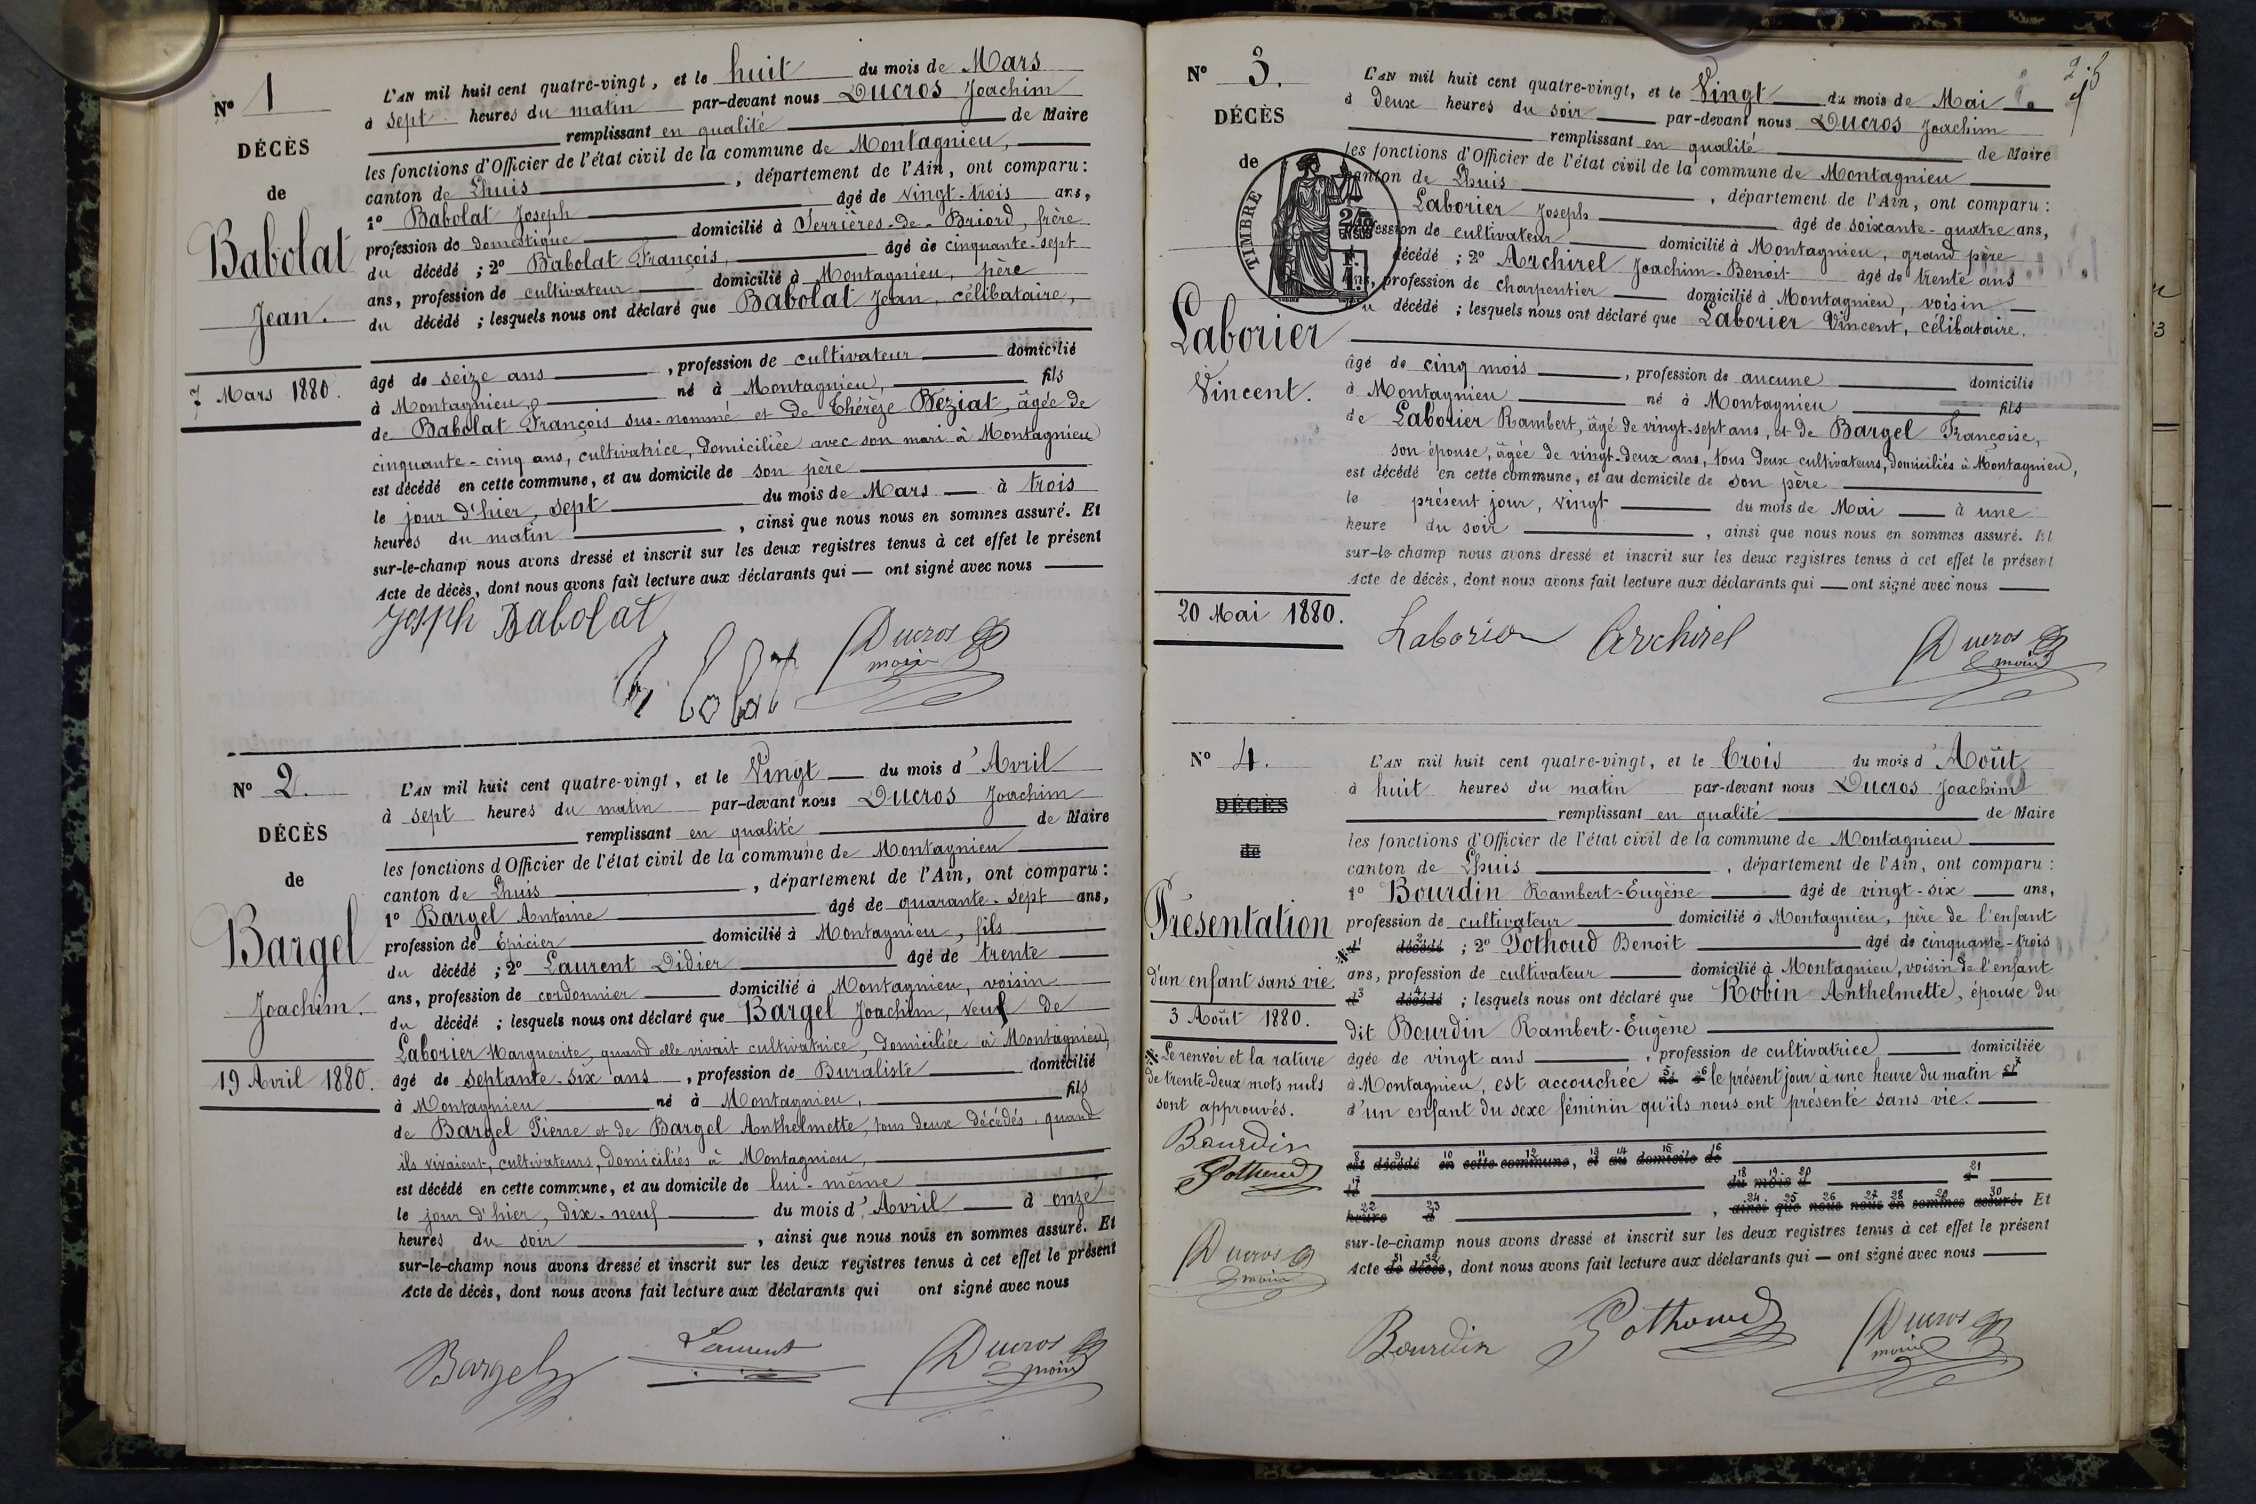 N° 1
DÉCÈS
de
Babolat
Jean.
7 Mars 1880.
L'AN mil huit cent quatre-vingt, et le huit du mois de Mars
à sept heures du matin par-devant nous Ducros Joachim
remplissant en qualité de Maire
les fonctions d'Officier de l'état civil de la commune de Montagnieu,
canton de Lhuis, département de l'Ain, ont comparu:
1° Babolat Joseph âgé de vingt-trois ans,
profession de domestique domicilié à Serrières-de-Briord, frère
du décédé; 2° Babolat François, âgé de cinquante-sept
ans, profession de cultivateur domicilié à Montagnieu, père
du décédé; lesquels nous ont déclaré que Babolat Jean, célibataire,
âgé de seize ans, profession de cultivateur domicilié
à Montagnieu, né à Montagnieu, fils
de Babolat François sus-nommé et de Thérèze Béziat, âgée de
cinquante-cinq ans, cultivatrice, domiciliée avec son mari à Montagnieu
est décédé en cette commune, et au domicile de son père
le jour d'hier, sept du mois de Mars à trois
heures du matin, ainsi que nous nous en sommes assuré. Et
sur-le-champ nous avons dressé et inscrit sur les deux registres tenus à cet effet le présent
Acte de décès, dont nous avons fait lecture aux déclarants qui — ont signé avec nous
Joseph Babolat
Ducros
maire
N° 2.
DÉCÈS
de
Bargel
Joachim.
19 Avril 1880.
L'AN mil huit cent quatre-vingt, et le Vingt du mois d'Avril
à sept heures du matin par-devant nous Ducros Joachim
remplissant en qualité de Maire
les fonctions d'Officier de l'état civil de la commune de Montagnieu
canton de Lhuis, département de l'Ain, ont comparu:
1° Bargel Antoine âgé de quarante-sept ans,
profession de Épicier domicilié à Montagnieu, fils
du décédé; 2° Laurent Didier âgé de trente
ans, profession de cordonnier domicilié à Montagnieu, voisin
du décédé; lesquels nous ont déclaré que Bargel Joachim, veuf de
Laborier Marguerite, quand elle vivait cultivatrice, domiciliée à Montagnieu,
âgé de septante-six ans, profession de Buraliste domicilié
à Montagnieu né à Montagnieu, fils
de Bargel Pierre et de Bargel Anthelmette, tous deux décédés, quand
ils vivaient, cultivateurs, domiciliés à Montagnieu,
est décédé en cette commune, et au domicile de lui-même
le jour d'hier, dix-neuf du mois d'Avril à onze
heures du soir, ainsi que nous nous en sommes assuré. Et
sur-le-champ nous avons dressé et inscrit sur les deux registres tenus à cet effet le présent
Acte de décès, dont nous avons fait lecture aux déclarants qui ont signé avec nous
Bargel Laurent Ducros
maire
N° 3.
DÉCÈS
de
TIMBRE
Laborier
Vincent.
20 Mai 1880.
L'AN mil huit cent quatre-vingt, et le Vingt du mois de Mai
à deux heures du soir par-devant nous Ducros Joachim
remplissant en qualité de Maire
les fonctions d'Officier de l'état civil de la commune de Montagnieu
canton de Lhuis, département de l'Ain, ont comparu:
Laborier Joseph âgé de soixante-quatre ans,
profession de cultivateur domicilié à Montagnieu, grand père
décédé; 2° Archirel Joachim-Benoit âgé de trente ans
ans, profession de charpentier domicilié à Montagnieu, voisin
du décédé; lesquels nous ont déclaré que Laborier Vincent, célibataire.
âgé de cinq mois, profession de aucune domicilié
à Montagnieu né à Montagnieu fils
de Laborier Rambert, âgé de vingt-sept ans, et de Bargel Françoise,
son épouse, âgée de vingt-deux ans, tous deux cultivateurs, domiciliés à Montagnieu,
est décédé en cette commune, et au domicile de son père
le présent jour, vingt du mois de Mai à une
heure du soir, ainsi que nous nous en sommes assuré. Et
sur-le-champ nous avons dressé et inscrit sur les deux registres tenus à cet effet le présent
Acte de décès, dont nous avons fait lecture aux déclarants qui — ont signé avec nous
Laborier Archirel Ducros
maire
N° 4.
DÉCÈS
de
Présentation
d'un enfant sans vie.
3 Août 1880.
Le renvoi et la rature
de trente-deux mots nuls
sont approuvés.
Bourdin
Pothoud
Ducros
maire
L'AN mil huit cent quatre-vingt, et le Trois du mois d'Août
à huit heures du matin par-devant nous Ducros Joachim
remplissant en qualité de Maire
les fonctions d'Officier de l'état civil de la commune de Montagnieu
canton de Lhuis, département de l'Ain, ont comparu:
1° Bourdin Rambert-Eugène âgé de vingt-six ans,
profession de cultivateur domicilié à Montagnieu, père de l'enfant
d1 décédé2; 2° Pothoud Benoit âgé de cinquante-trois
ans, profession de cultivateur domicilié à Montagnieu, voisin de l'enfant
d3 décédé4; lesquels nous ont déclaré que Robin Anthelmette, épouse du
dit Bourdin Rambert-Eugène
âgée de vingt ans, profession de cultivatrice domiciliée
à Montagnieu, est accouchée né5 à6 le présent jour à une heure du matin
d'un enfant du sexe féminin qu'ils nous ont présenté sans vie.
8 9 10 11 12 13 14 15 16
est décédé en cette commune, et au domicile de
17 18 19 20 21
le du mois d à
22 23 24 25 26 27 28 29 30
heure d, ainsi que nous nous en sommes assuré. Et
sur-le-champ nous avons dressé et inscrit sur les deux registres tenus à cet effet le présent
31 32
Acte de décès, dont nous avons fait lecture aux déclarants qui — ont signé avec nous
Bourdin Pothoud Ducros
maire